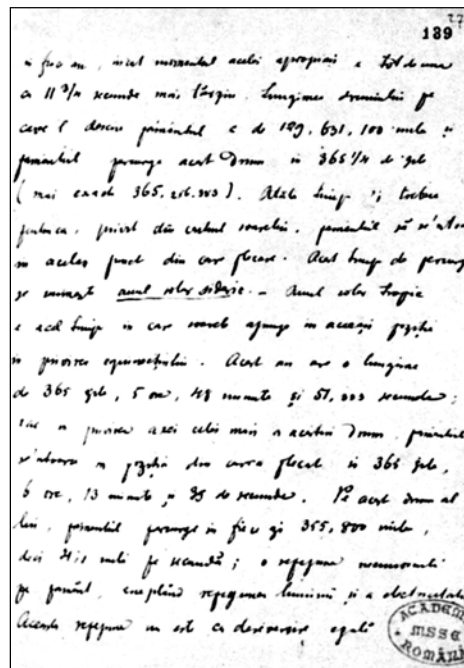 139
în fiece an, încât momentul acelei apropieri e totdeuna
cu 11 3/4 secunde mai târziu. Lungimea drumului pe
care-l descrie pământul e de 129,631,100 mile și
pământul parcurge acest drum în 365 1/4 de zile
(mai exact 365,256.383). Atâta timp îi trebue
pentru ca, privit din centrul soarelui, pământul să se'ntoarcă
în acelaș punct din care plecase. Acest timp de
se numește anul solar sideric. – Anul solar tropic
e acel timp în care soarele ajunge în aceeași poziție
în privirea equinocțiului. Acest an are o lungime
de 365 zile, 5 ore, 48 minute și 51, secunde;
iar în privirea axei celei mari a acestui drum, pământul
se'ntoarce în poziția din care a plecat în 365 zile,
6 ore, 13 minute și 35 de secunde. Pe acest drum al
lui, pământul parcurge în fiece zi 355,800 mile,
deci 4,1 mile pe secundă; o repejune
pe pământ, repejunea luminii și a electricității
Aceasta repejune nu este cu desăvârșire egală
ACADEMI
MSSE
ROMÂNĂ